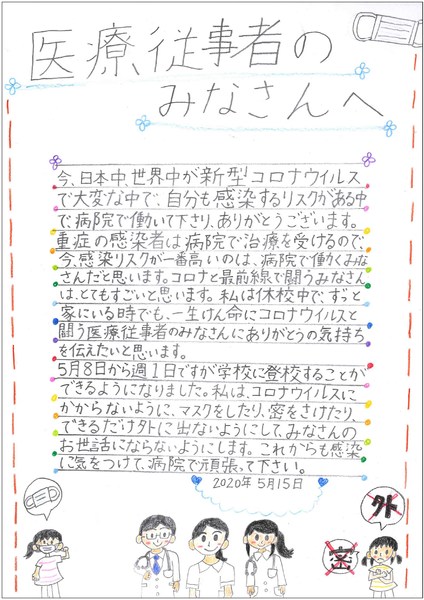 医療従事者の
みなさんへ
今、日本中、世界中が新型コロナウイルス
で大変な中で、自分も感染するリスクがある中
で、病院で働いて下さり、ありがとうございます。
重症の感染者は病院で治療を受けるので、
今、感染リスクが一番高いのは、病院で働くみな
さんだと思います。コロナと最前線で闘うみなさん
は、とてもすごいと思います。私は休校中で、ずっと
家にいる時でも、一生けん命にコロナウイルスと
闘う医療従事者のみなさんにありがとうの気持ち
を伝えたいと思います。
5月8日から週1日ですが学校に登校することが
できるようになりました。私は、コロナウイルスに
かからないように、マスクをしたり、密をさけたり、
できるだけ外に出ないようにして、みなさんの
お世話にならないようにします。これからも感染
に気をつけて、病院で頑張って下さい。
2020年5月15日
外
密